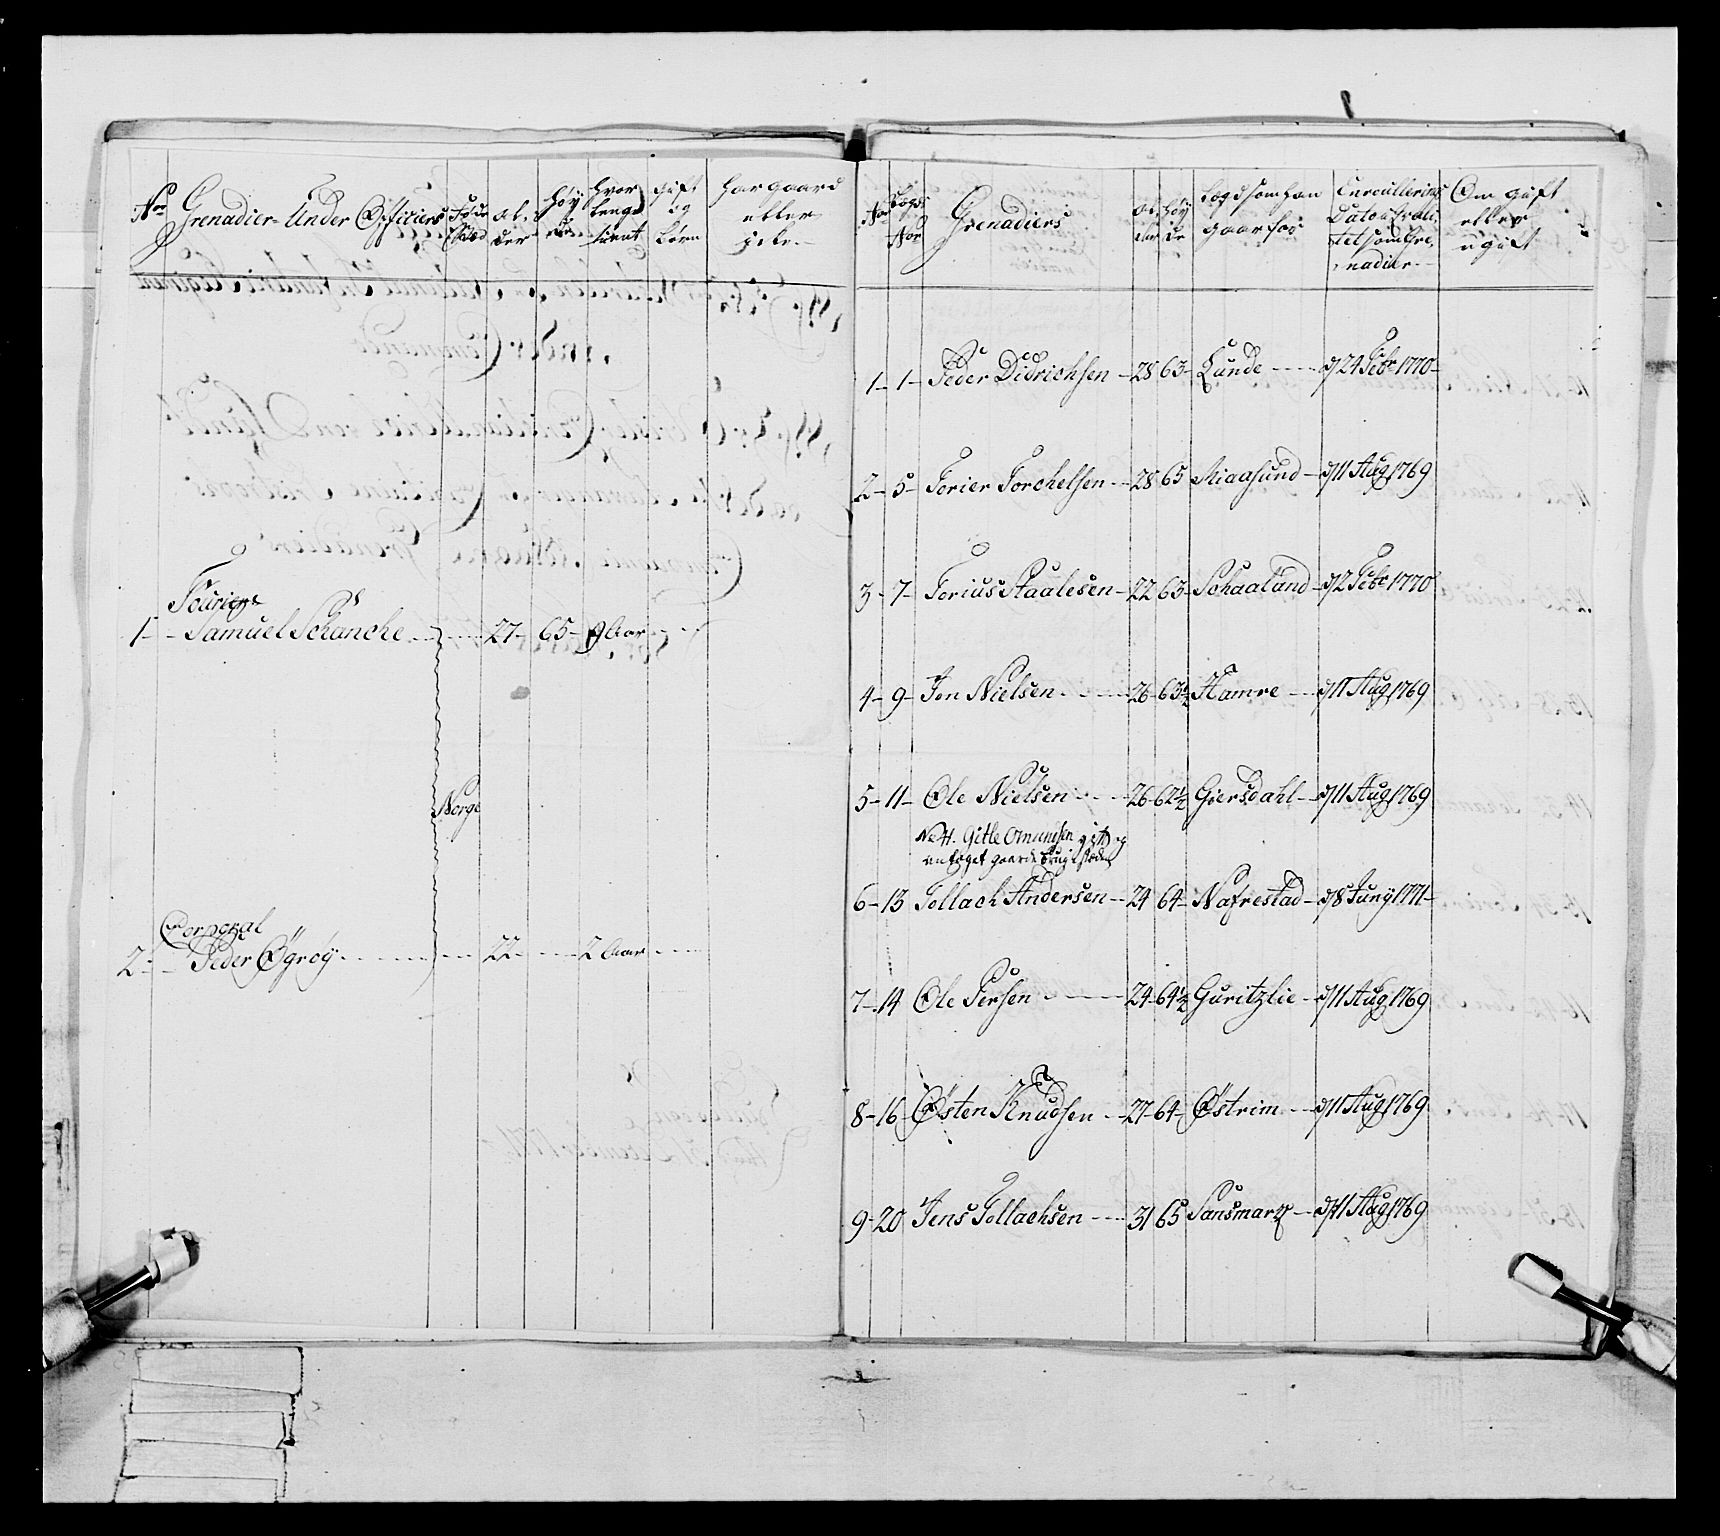 No Grenadier Under Officiers Føde Stæd Al- der Høy de Hvor lenge tient Gift og Børn Har gaard eller icke
Fourier
1 - Samuel Schanche - 27 - 65 - 9 Aar
Norge
Corporal
2 - Peder Øgrey - 22 - 2 Aar
No Lægds No Grenadiers Al der Høy de Lægd som han gaar for Enroullerings Dato i Qvali tet som Gre nadier Om gift eller ugift
1 - 1 - Peder Didrichsen - 28 63 - Lunde - d 24 Febr 1770
2 - 5 - Torier Torchelsen - 28 65 Miaasund - d 11 Aug 1769
3 - 7 - Torius Staalesen - 22 63 - Schaaland - d 12 Febr 1770
4 - 9 - Jon Nielsen - 26 - 63½ Hamre - d 11 Aug 1769
5 - 11 - Ole Nielsen - 26 - 62½ Giersdahl - d 11 Aug 1769
Gitle Omundsen gift og
antaget gaards brug i stæden
6 - 13 Tollach Andersen - 24 64 - Nafrestad - d 8 Juny 1771
7 - 14 Ole Persen - 24 - 64½ Guritzlie - d 11 Aug 1769
8 - 16 - Østen Knudsen - 27 - 64 - Østrim - d 11 Aug 1769
9 - 20 Jens Tollachsen - 31 65 Sansmark - d 11 Aug 1769